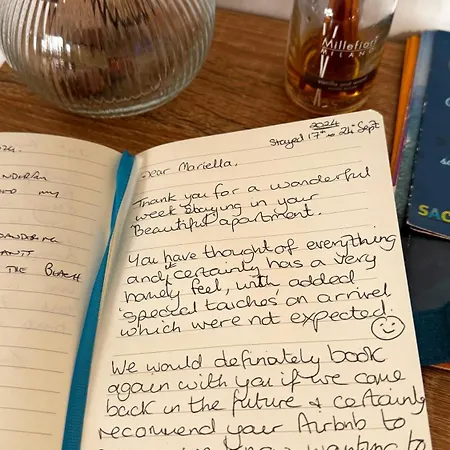 Millefiori
MILANO
2024
Stayed 17th to 24th Sept
Dear Mariella,
Thank you for a wonderful
week staying in your
Beautiful apartment.
You have thought of everything
and it certainly has a very
homely feel, with added
special touches on arrival
which were not expected.
We would definately book
again with you if we came
back in the future & certainly
recommend your Airbnb to
wanting to
THE BEACH
SAC